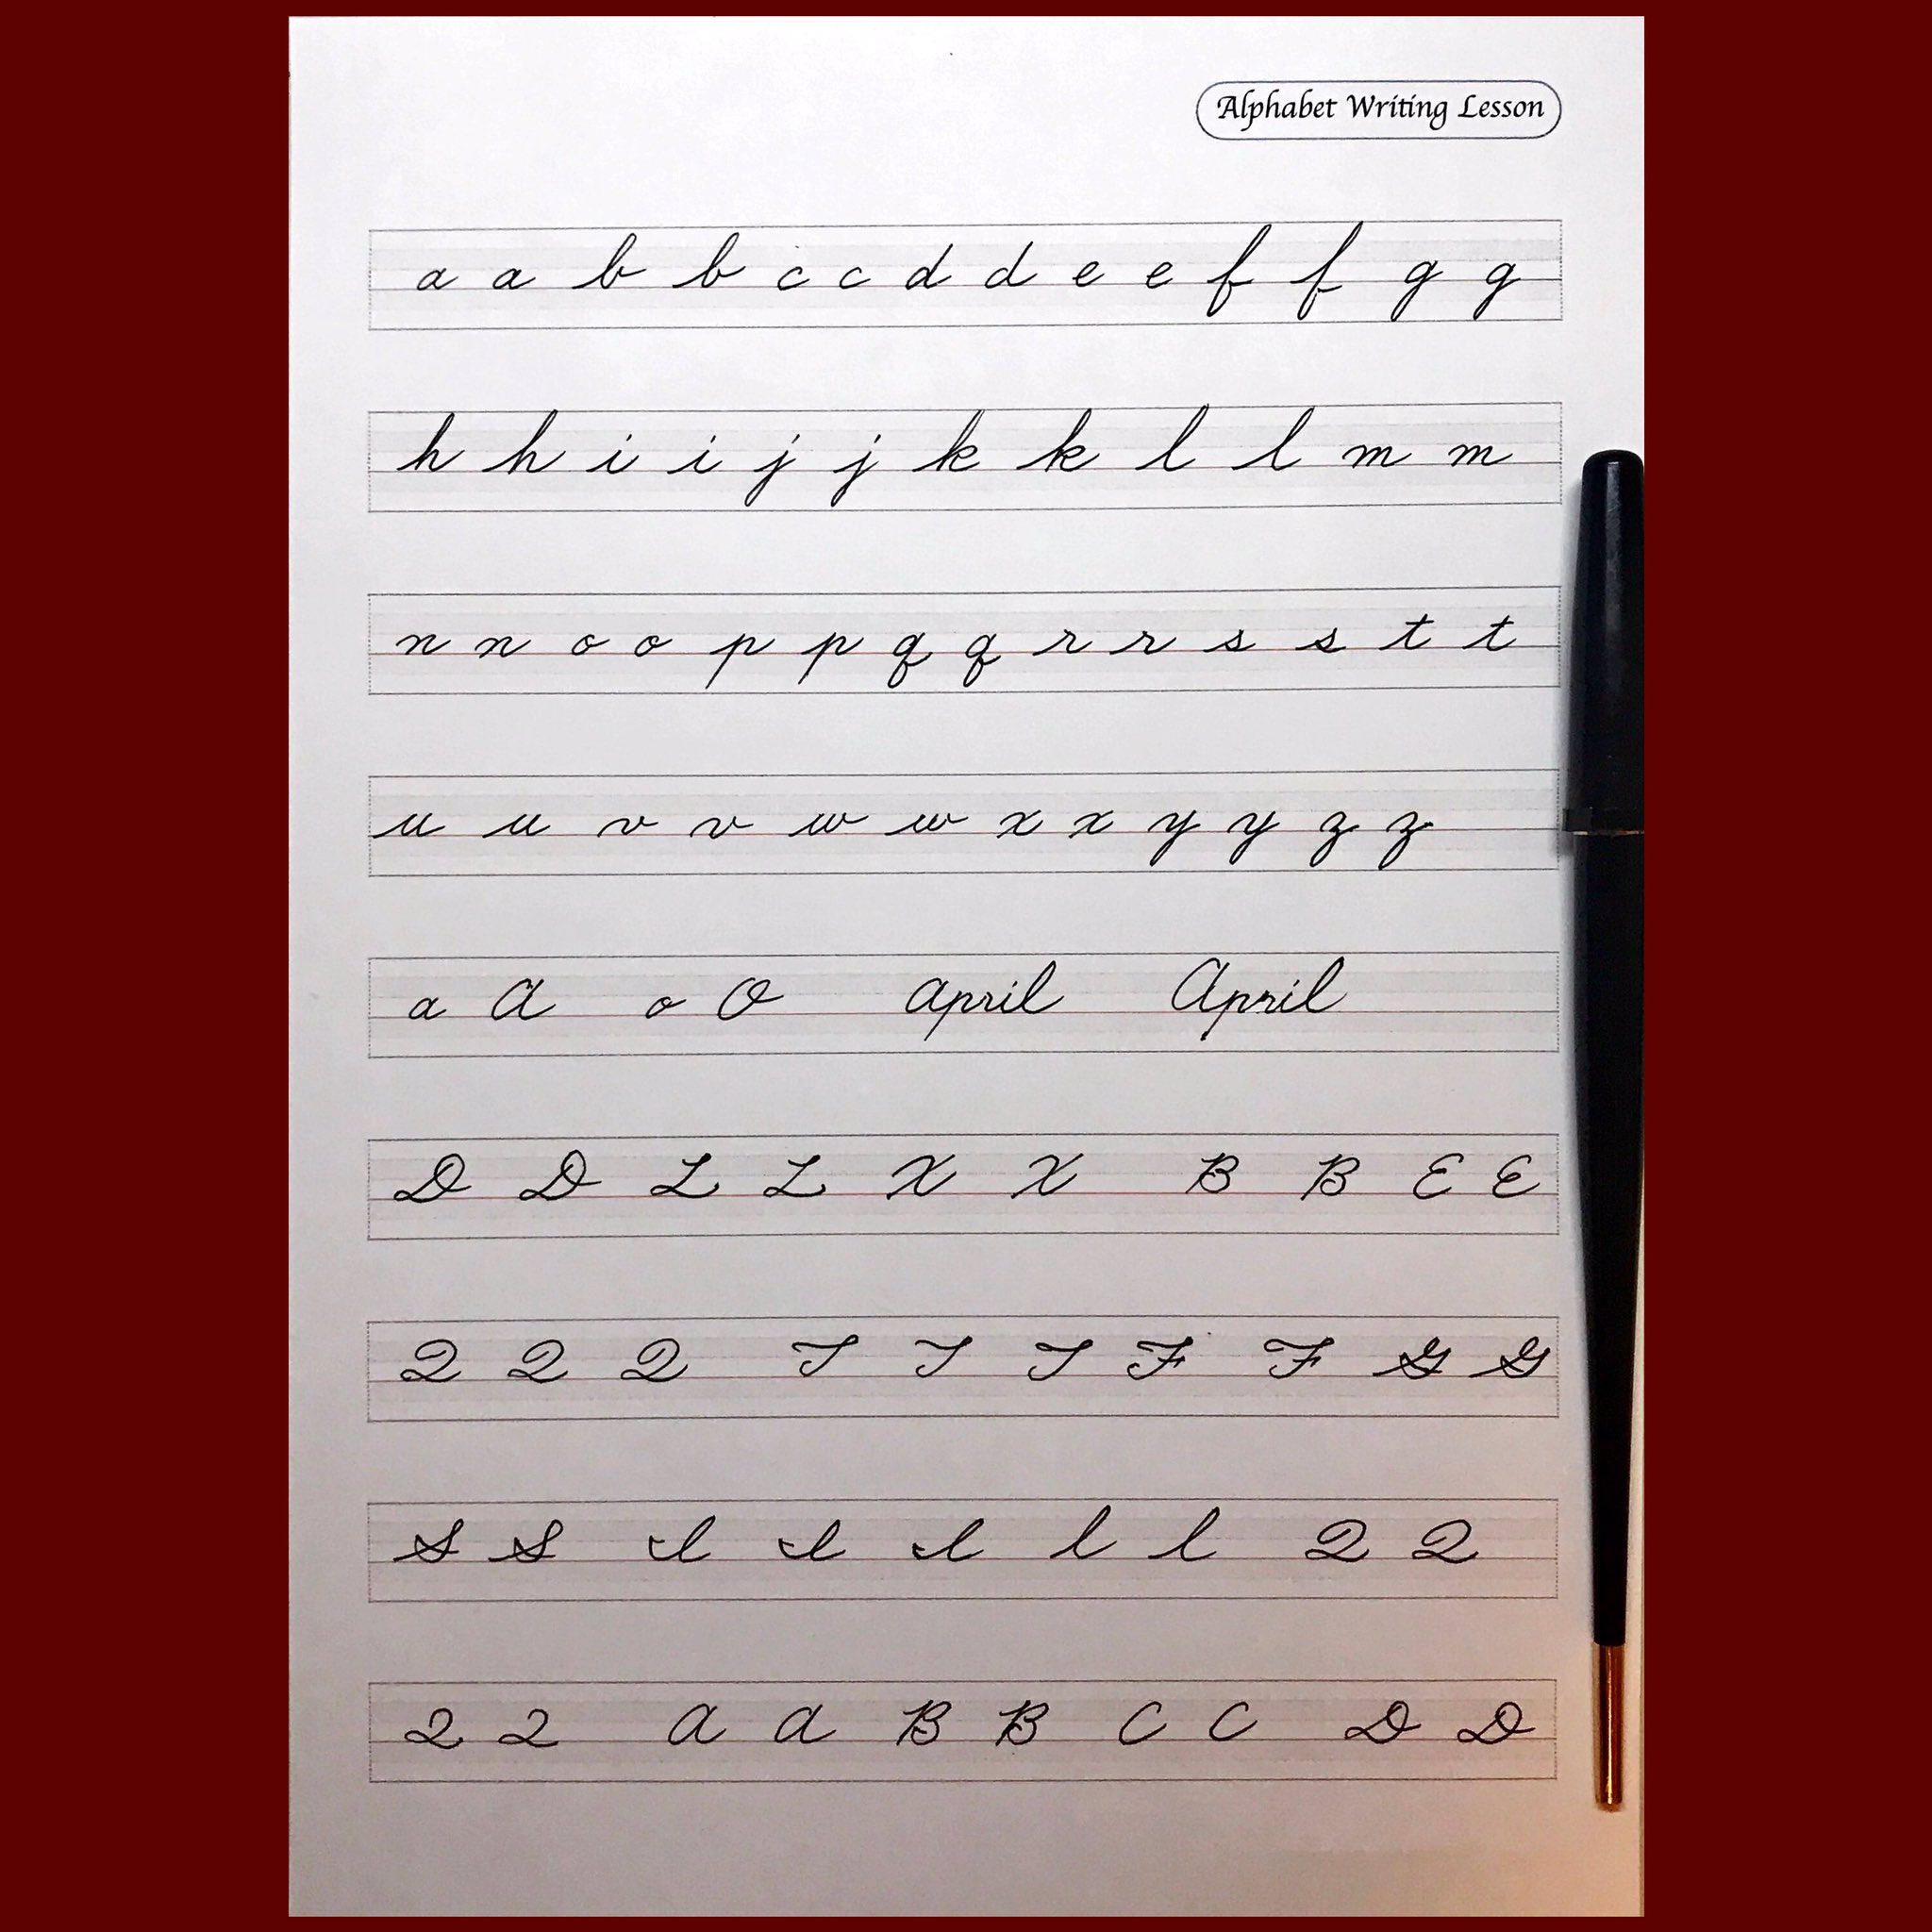 Alphabet Writing Lesson
a a b b c c d d e e f f g g
h h i i j j k k l l m m
n n o o p p q q r r s s t t
u u v v w w x x y y z z
a A o O april April
D D L L X X B B E E
Q Q Q T T T F F G G
S S I I I l l Q Q
Q Q A A B B C C D D